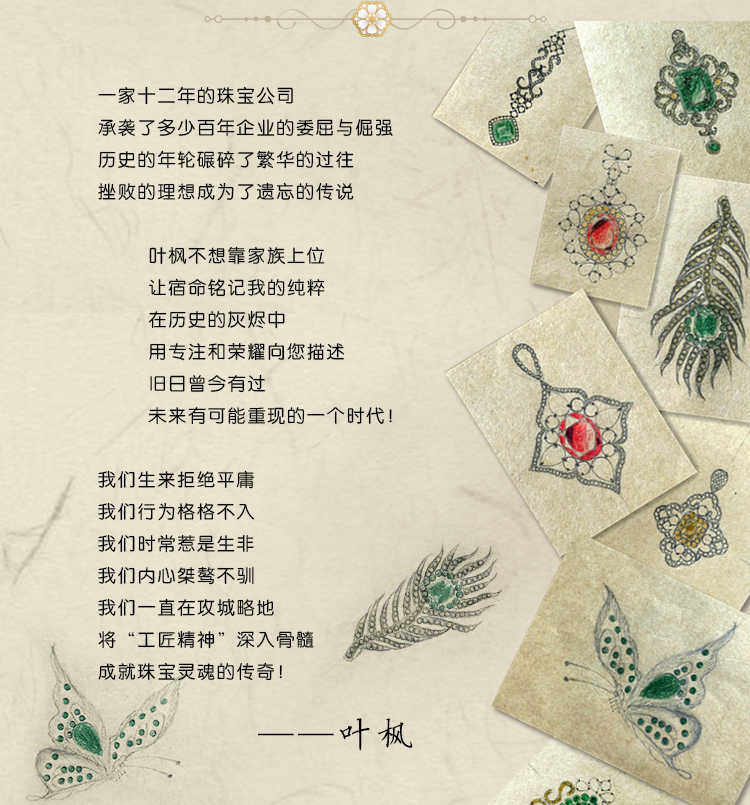 一家十二年的珠宝公司
承袭了多少百年企业的委屈与倔强
历史的年轮碾碎了繁华的过往
挫败的理想成为了遗忘的传说
叶枫不想靠家族上位
让宿命铭记我的纯粹
在历史的灰烬中
用专注和荣耀向您描述
旧日曾今有过
未来有可能重现的一个时代!
我们生来拒绝平庸
我们行为格格不入
我们时常惹是生非
我们内心桀骜不驯
我们一直在攻城略地
将“工匠精神”深入骨髓
成就珠宝灵魂的传奇!
——叶枫